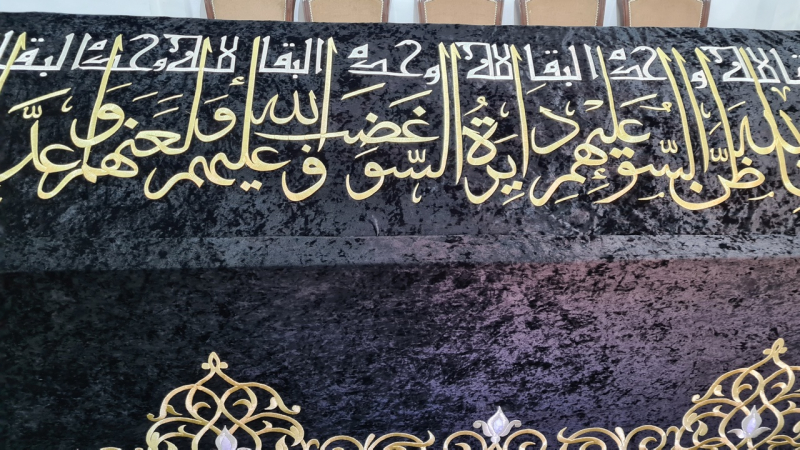 لله وحده البقا لله وحده البقا لله وحده البقا
بالله ظن السوء عليهم دايرة السو وغضب الله عليهم ولعنهم وأعد